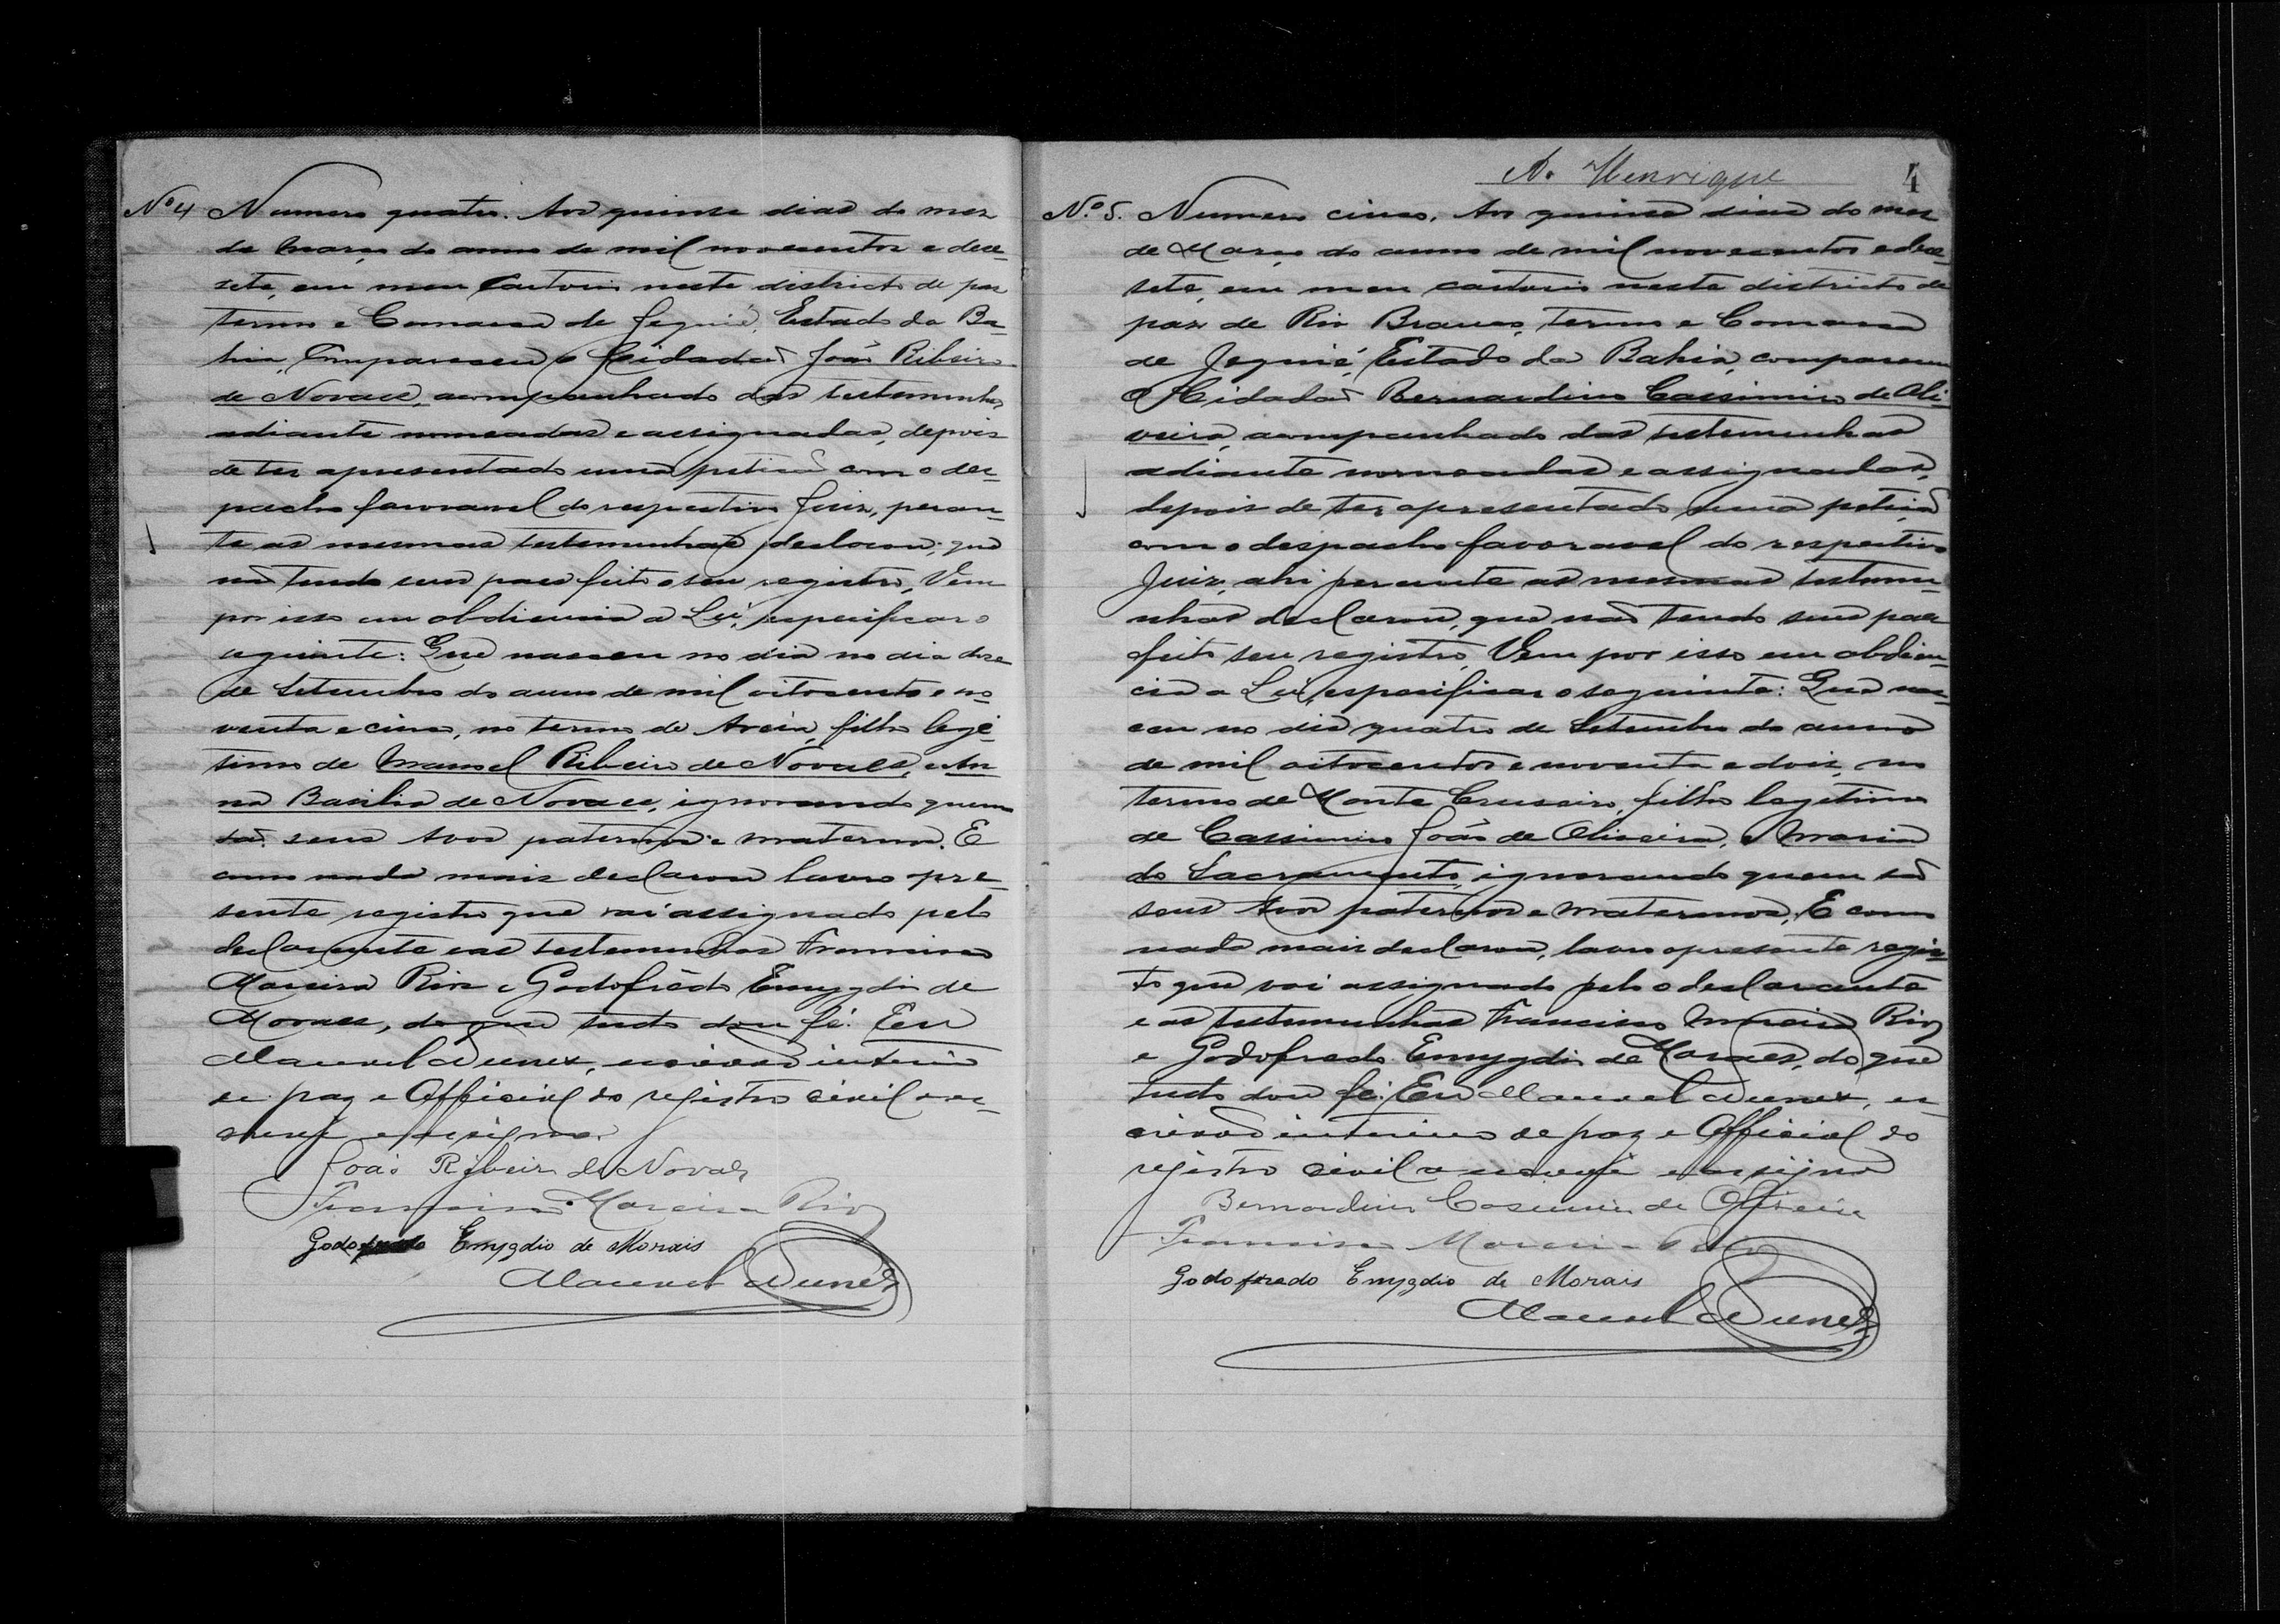 Nº 4 Numero quatro. Aos quinse dias do mez
de Março do anno de mil novecentos e deze-
sete, em meu Cartorio neste districto de paz
termo e Comarca de Jequié, Estado da Ba-
hia, Compareceu o Cidadaõ João Ribeiro
de Novaes, acompanhado das testemunhas
adiante nomeadas e assignadas, depois
de ter apresentado uma petiçaõ com o des-
pacho favoravel do respectivo Juiz, peran-
te as mesmas testemunhas declarou, que
naõ tendo seus paes feito o seu registro, Vem
por isso em obdiencia a Lei, especificar o
seguinte: Que nasceu no dia no dia doze
de Setembro do anno de mil oitocentos e no-
venta e cinco, no termo de Areia, filho legi-
timo de Manoel Ribeiro de Novaes, e An-
na Basilia de Novaes, ignorando quem
saõ seus Avos paternos e maternos. E
como nada mais declarou lavro o pre-
sente registro que vai assignado pelo
declarante e as testemunhas Francisco
Moreira Rios e Godofrêdo Emygdio de
Moraes, do que tudo dou fé. Eu
Manoel Nunes, escrivaõ interino
de paz e Official do registro civil o es-
crevi e assigno.
João Ribeiro de Novaes
Francisco Moreira Rios
Godofredo Emygdio de Morais
Manoel Nunes
A. Henrique
4
N.º 5. Numero cinco. Aos quinse dias do mez
de Março do anno de mil novecentos e deze-
sete, em meu cartorio neste districto de
paz de Rio Branco, termo e Comarca
de Jequié, Estado da Bahia, compareceu
o Cidadaõ Bernardino Cassimiro de Oli-
veira, acompanhado das testemunhas
adiante nomeadas e assignadas,
depois de ter apresentado uma petiçaõ
com o despacho favoravel do respectivo
Juiz, ahi perante as mesmas testemu-
nhas declarou, que naõ tendo seus paes
feito seu registro, Vem por isso em obdien-
cia a Lei, especificar o seguinte: Que nas-
ceu no dia quatro de Setembro do anno
de mil oitocentos e noventa e dois, no
termo de Monte Cruseiro, filho legitimo
de Cassimiro João de Oliveira, e Maria
do Sacramento, ignorando quem saõ
seus Avos paternos e maternos. E como
nada mais declarou, lavro o presente regis-
to que vai assignado pelo o declarante
e as testemunhas Francisco Moreira Rios
e Godofredo Emygdio de Moraes, do que
tudo dou fé. Eu Manoel Nunes, es-
crivaõ interino de paz e Official do
registro civil o escrevi e assigno
Bernardino Casimiro de Oliveira
Francisco Moreira Rios
Godofredo Emygdio de Morais
Manoel Nunes